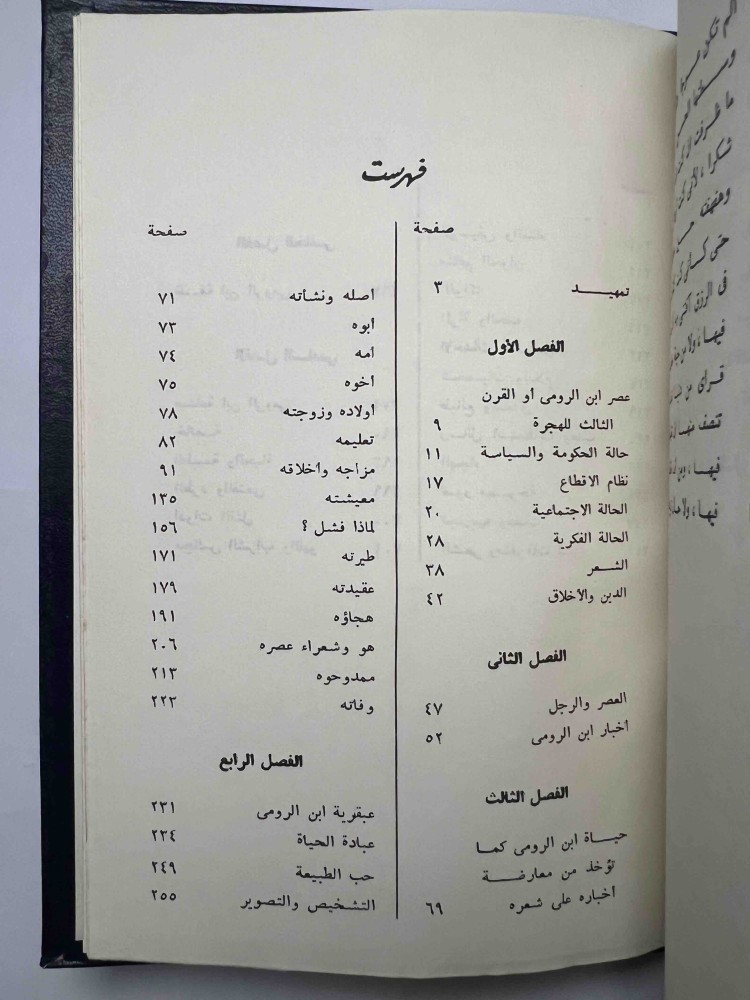 فهرست
صفحة
تمهيد ٣
الفصل الأول
عصر ابن الرومى أو القرن
الثالث للهجرة ٩
حالة الحكومة والسياسة ١١
نظام الاقطاع ١٧
الحالة الاجتماعية ٢٠
الحالة الفكرية ٢٨
الشعر ٣٨
الدين والأخلاق ٤٢
الفصل الثانى
العصر والرجل ٤٧
أخبار ابن الرومى ٥٢
الفصل الثالث
حياة ابن الرومى كما
تؤخذ من معارضة
أخباره على شعره ٦٩
صفحة
أصله ونشأته ٧١
أبوه ٧٣
أمه ٧٤
أخوه ٧٥
أولاده وزوجته ٧٨
تعليمه ٨٢
مزاجه وأخلاقه ٩١
معيشته ١٣٥
لماذا فشل؟ ١٥٦
طيرته ١٧١
عقيدته ١٧٩
هجاؤه ١٩١
هو وشعراء عصره ٢٠٦
ممدوحوه ٢١٣
وفاته ٢٢٣
الفصل الرابع
عبقرية ابن الرومى ٢٣١
عبادة الحياة ٢٣٤
حب الطبيعة ٢٤٩
التشخيص والتصوير ٢٥٥